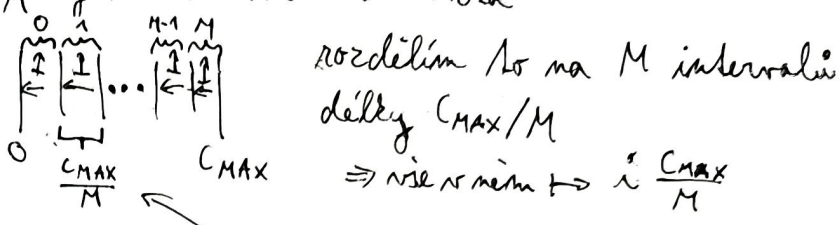 0 1 M-1 M
1 1 ... 1 1
rozdělím to na M intervalů
délky C_MAX/M
0 C_MAX
C_MAX/M
⇒ vše v něm ↦ i C_MAX/M